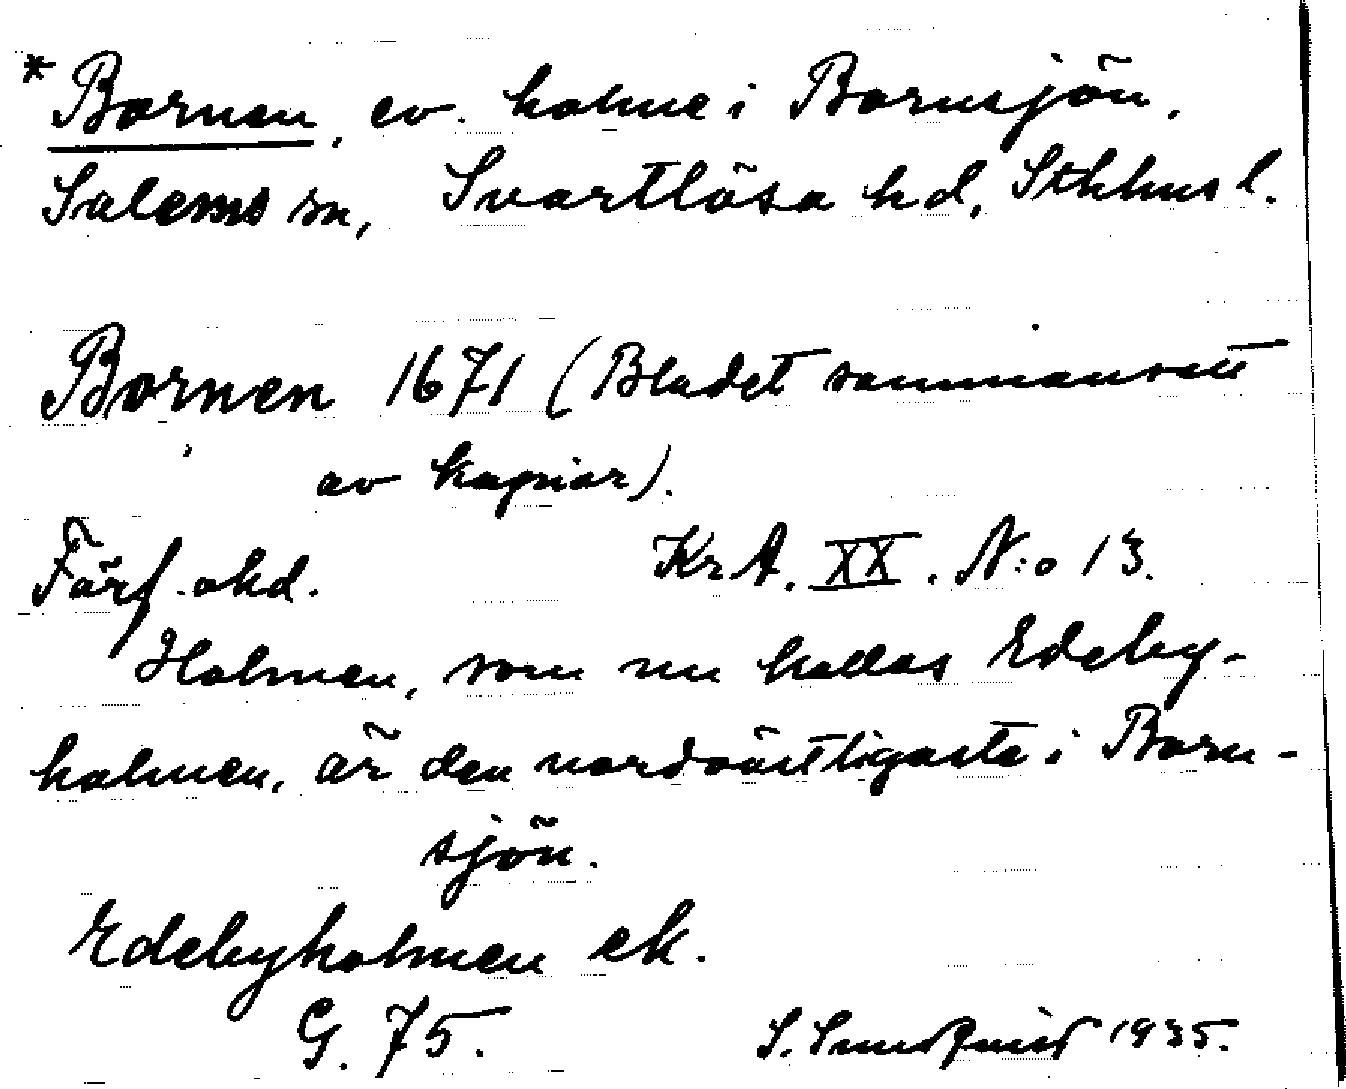 *Bornen, ev. holme i Bornsjön,
Salems sn, Svartlösa hd, Sthlms l.
Bornen 1671 (Bladet sammansatt
av kopior).
Förf. okd. Kr.A. XX. N:o 13.
Holmen, som nu kallas Edeby-
holmen, är den nordvästligaste i Born-
sjön.
Edebyholmen ek.
G. 75. S. Sundquist 1935.